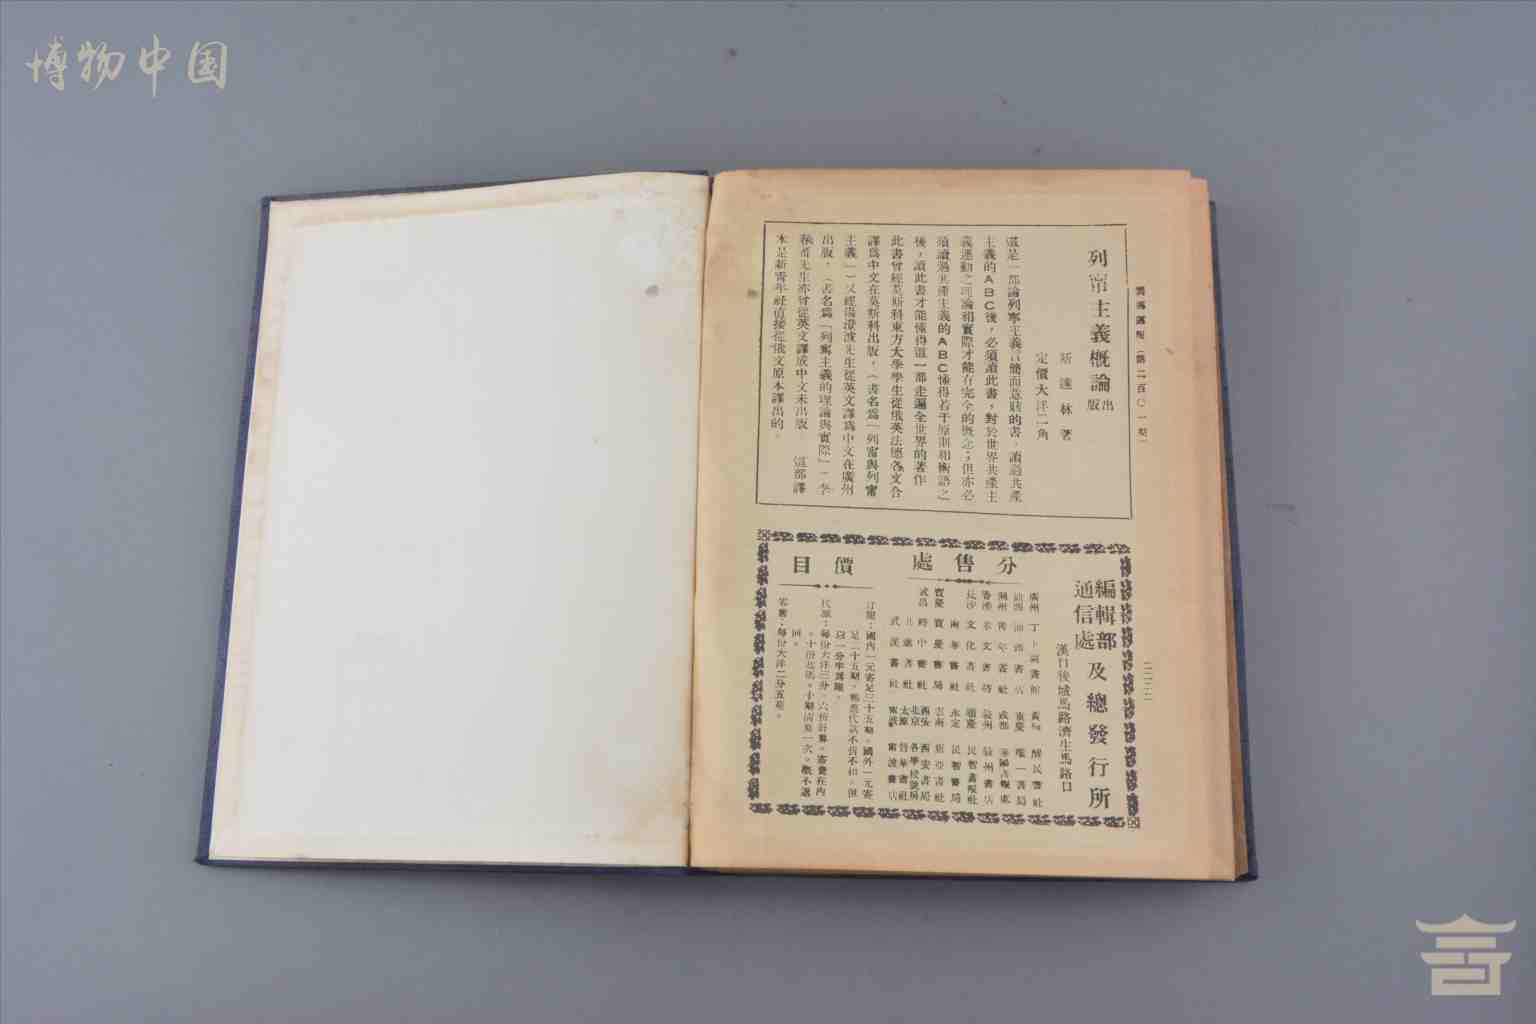 博物中国
嚮導週報（第二百〇一期）
列甯主義概論出版
斯達林著
定價大洋二角
這是一部論列寧主義言簡而意賅的書，讀過共產
主義的ABC後，必須讀此書，對於世界共產主
義運動之理論和實際才能有完全的概念；但亦必
須讀過共產主義的ABC懂得若干原則和術語之
後，讀此書才能懂得這一部走遍全世界的著作
此書曾經莫斯科東方大學學生從俄英法德各文合
譯爲中文在莫斯科出版，（書名爲「列甯與列甯
主義」）又經 先生從英文譯爲中文在廣州
出版，（書名爲「列寗主義的理論與實際」）李
春蕃先生亦曾從英文譯成中文未出版 這部譯
本是新青年社直接從俄文原本譯出的。
編輯部
通信處
及總發行所
漢口後城馬路濟生馬路口
分售處
廣州 丁卜圖書館
長沙 文化書社
寶慶 寶慶書局
武昌 時中書社
共進書社
武漢書社
重慶 唯一書局
永定 民智書局
雲南 新亞書社
西安 西安書局
北京 各學校號房
太原 晉華書社
寧波 寧波書店
價目
訂閱：國內一元寄足三十五期。國外一元寄
足二十五期。郵票代款不折不扣。但
以一分半爲限。
代派：每份大洋三分。六折計算。寄費在內
。十份起碼。十期清算一次。概不退
回。
零售：每份大洋二分五厘。